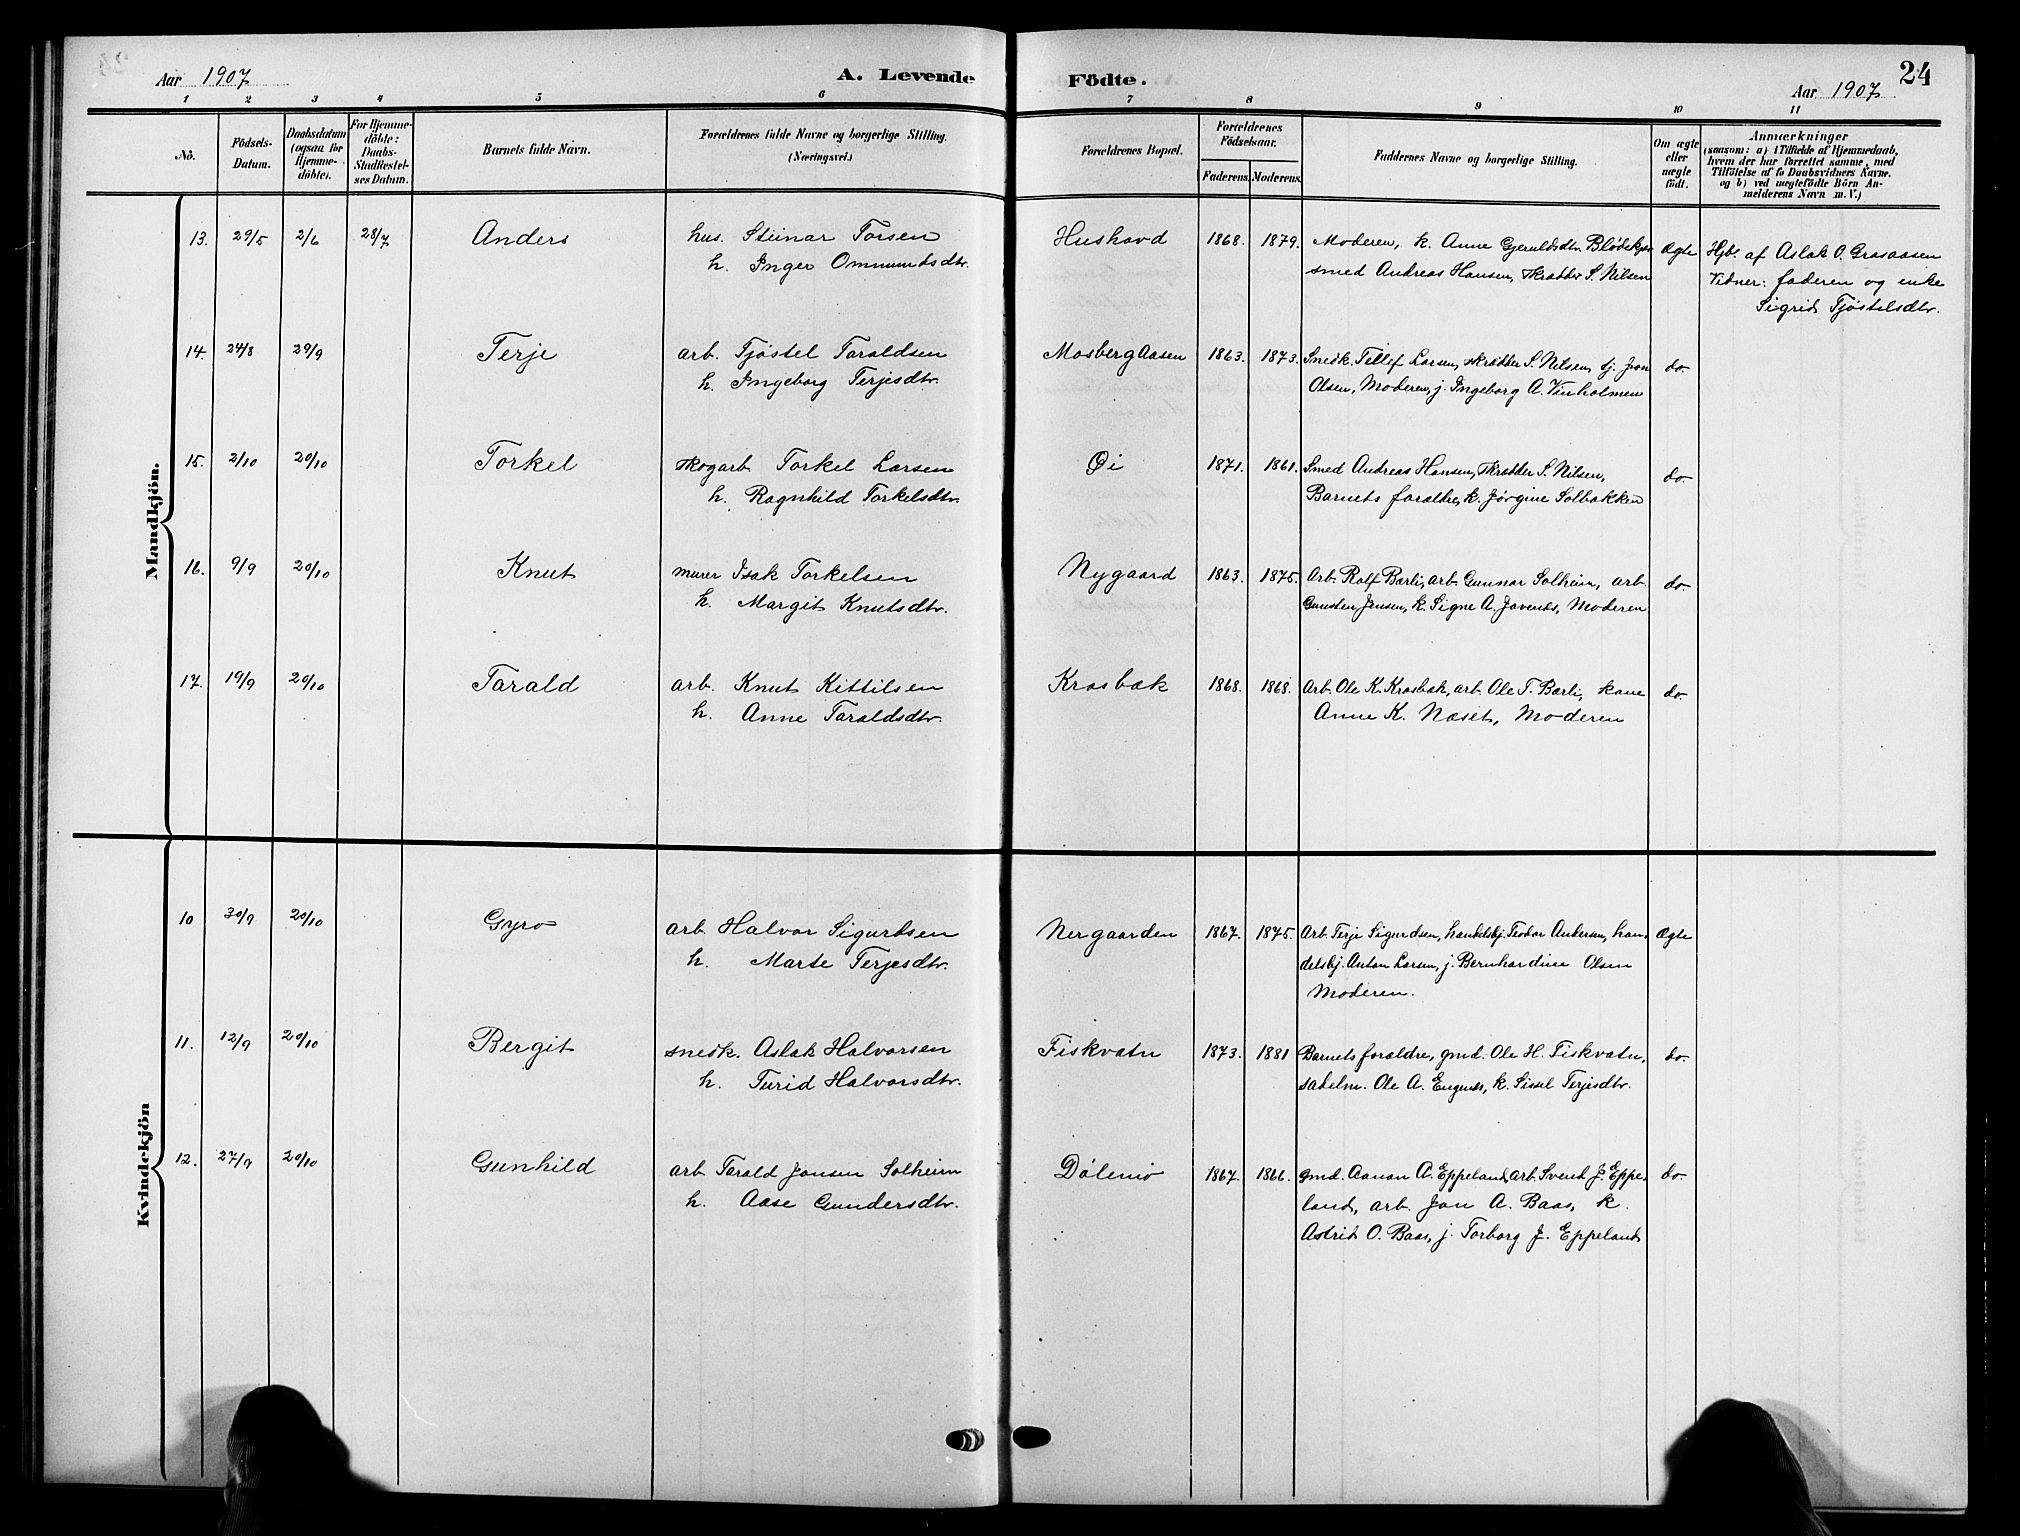 Aar 1907 A. Levende Födte. Aar 1907 24
1 2 3 4 5 6 7 8 9 10 11
Nö. Födsels-Datum. Daabsdatum (ogsaa for Hjemmedöbte). For Hjemmedöbte: Daabs-Stadfæstelses Datum. Barnets fulde Navn. Forældrenes fulde Navne og borgerlige Stilling. (Næringsvei.) Forældrenes Bopæl. Forældrenes Födselsaar. Faderens. Moderens. Faddernes Navne og borgerlige Stilling. Om ægte eller uægte födt. Anmærkninger (saasom: a) i Tilfælde af Hjemmedaab, hvem der har forrettet samme, med Tilföielse af to Daabsvidners Navne. og b) ved uægtefödte Börn Anmelderens Navn m. V.)
Mandkjön.
13. 29/5 2/6 28/7 Anders hus. Steinar Torsen Hushovd 1868. 1879. Moderen, k. Anne Gjeruldsdtr. Ægte Hjb. af Aslak O. Grasaasen
h. Inger Ommundsdtr. smed Andreas Hansen, skrædder S. Nilsen Vidner: faderen og enke
Sigrid Tjöstelsdtr.
14. 24/8 29/9 Terje arb. Tjöstel Taraldsen Mosberg Aasen 1863. 1873. Snedk. Tellef Larsen, skrædder S. Nilsen, Jon do.
h. Ingeborg Terjesdtr. Olsen, Moderen, j. Ingeborg A. Vinholmen
15. 2/10 20/10 Torkel skogarb Torkel Larsen Öi 1871. 1861. Smed Andreas Hansen, skrædder S. Nilsen, do.
h. Ragnhild Torkelsdtr. Barnets forældre, k. Jörgine Solbakken
16. 9/9 20/10 Knut murer Isak Torkelsen Nygaard 1863. 1875. Arb. Rolf Bærli, arb. Gunnar Solheim, arb. do.
h. Margit Knutsdtr. Gunsten Jensen, k. Signe A. Jovnes, Moderen
17. 19/9 20/10 Tarald arb. Knut Kittilsen Krosbæk 1868. 1868. Arb. Ole K. Krosbæk, arb. Ole T. Bærli, kone do.
h. Anne Taraldsdtr. Anne K. Næset, Moderen
Kvindekjön
10 30/9 20/10 Gyro arb. Halvor Sigurdsen Nergaarden 1867. 1875. Arb. Terje Sigurdsen, handelsbj. Teodor Andersen, han- Ægte
h. Marte Terjesdtr. delsbj. Anton Larsen, j. Bernhardine Olsen
Moderen.
11. 12/9 20/10 Bergit snedk. Aslak Halvorsen Fiskvatn 1873. 1881 Barnets forældre, gmd. Ole H. Fiskvatn, do.
h. Turid Halvorsdtr. sadelm. Ole A. Engenes, k. Sissel Terjesdtr.
12. 27/9 20/10 Gunhild arb Tarald Jonsen Solheim Dölemo 1867. 1866. gmd. Aanon A. Eppeland, arb. Svend J. Eppe- do.
h. Aase Gundersdtr. land, arb. Jon A. Baas, k.
Astrid O. Baas, j. Torborg J. Eppeland